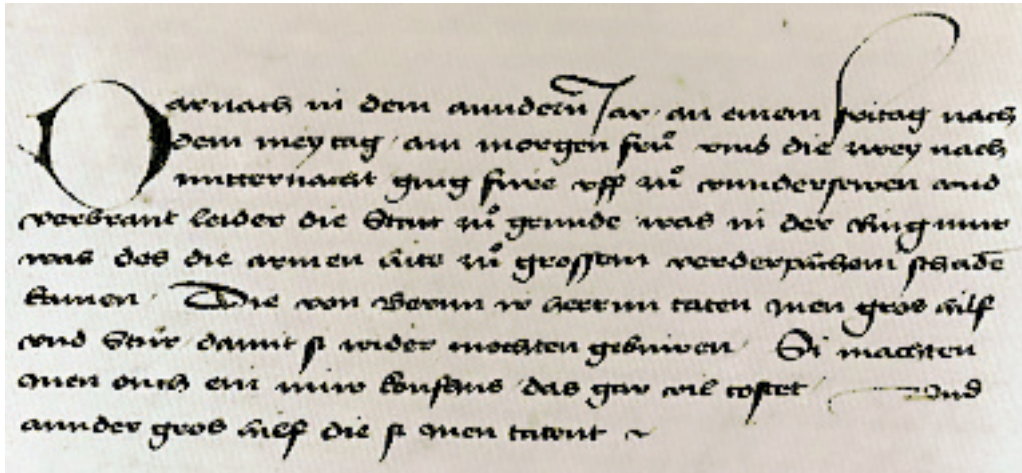 Darnach in dem anndern Jar an einem fritag nach
dem meytag am morgen fruͦ vmb die zwey nach
mitternacht ging fure vff zuͦ vnndersewen vnd
verbrant leider die Statt zuͦ grunde was in der Ringmur
was des die armen lute zuͦ grossem verderplichem schadē
kamen Die von Bernn ir herrnn taten Inen gros hilf
vnd Stur damit si wider mochten gebuwen Si machten
Inen ouch ein nuw koufhus das gar vil costet Vnd
annder gros hilf die si Inen tatent